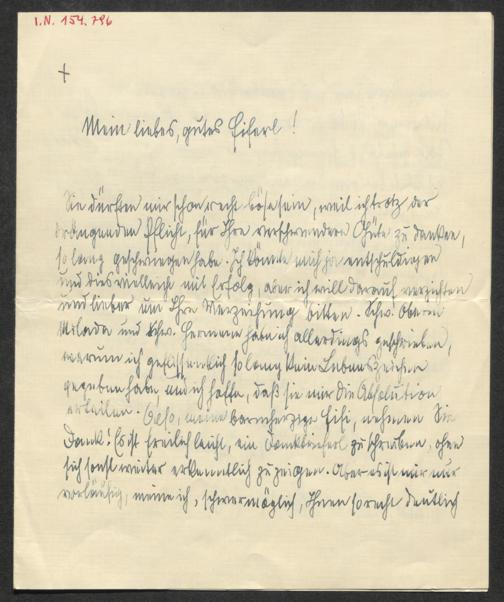 I.N. 154.796
+
Mein liebes, gutes Fiferl!
Sie dürften mir schon recht böse sein, weil ich trotz der
drängenden Pflicht, für Ihre verschwendern Güte zu danken,
so lang geschwiegen habe. Ich könnte mich ja entschuldigen
und dies vielleicht mit Erfolg, aber ich will darauf verzichten
und lieber um Ihre Verzeihung bitten. Schw. Oberin
Milada und Schw. Hermane habe ich allerdings geschrieben,
warum ich geflissentlich so lang kein Lebenszeichen
gegeben habe und ich hoffe, daß sie mir die Absolution
erteilen. Also, meine barmherzige Fifi, nehmen Sie
Dank! Es ist freilich leicht, ein Dankbrieferl zu schreiben, ohne
sich sonst weiter erkenntlich zu zeigen. Aber es ist mir nur
vorläufig, meine ich, schwer möglich, Ihnen so recht deutlich